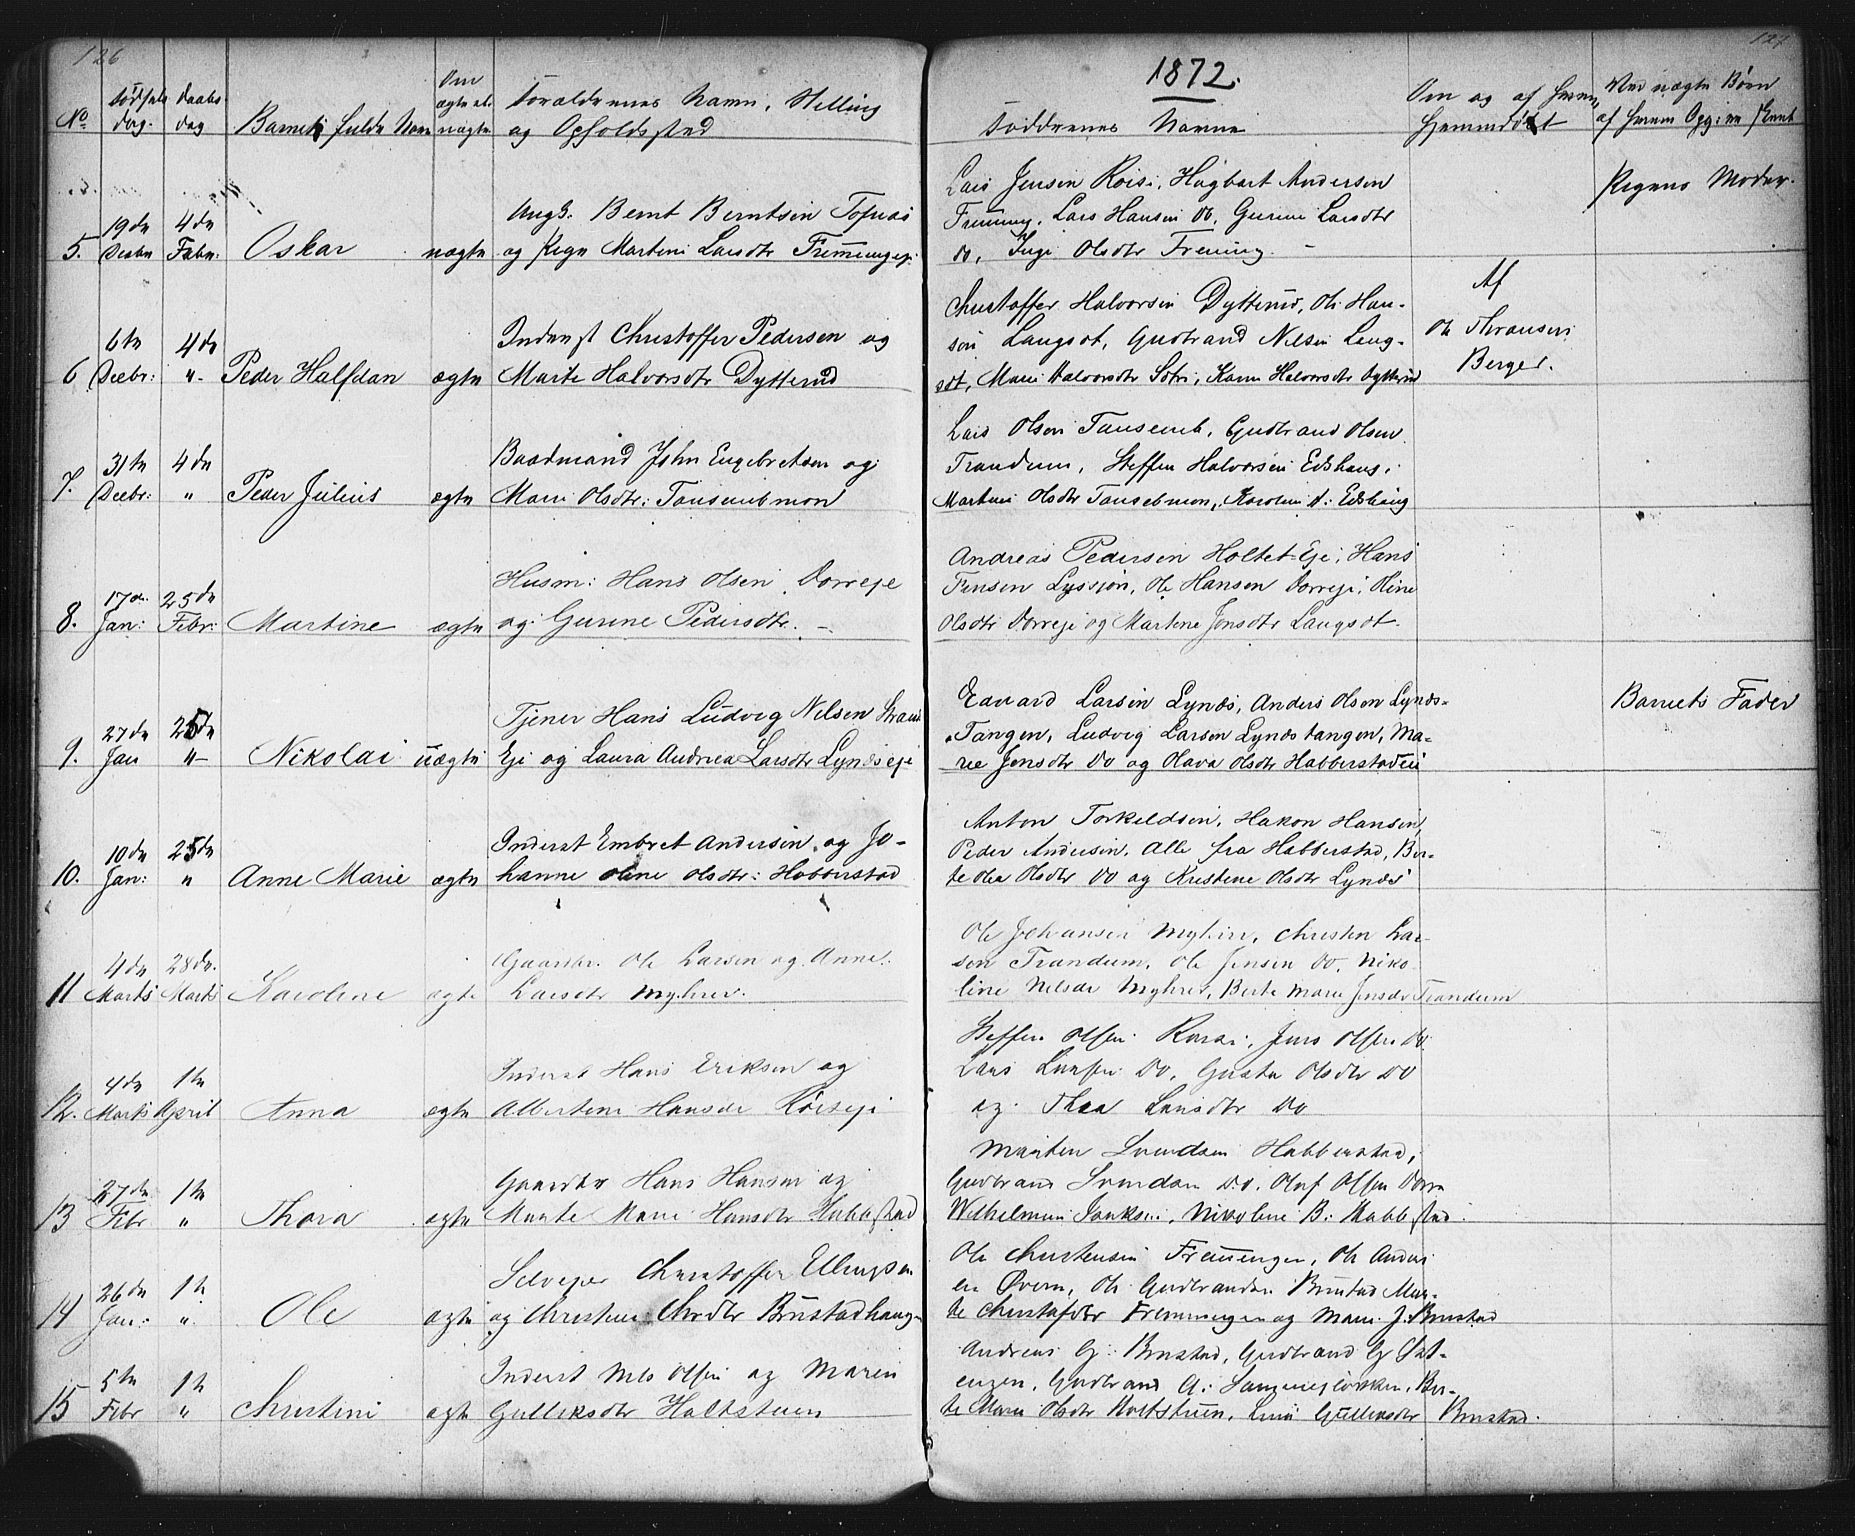 126
127
1872.
No
Fødsels
dag.
Daabs
dag
Barnets fulde Navn
Om
ægte el.
uægte
Forældrenes Navn, Stilling
og Opholdssted
Faddrenes Navne
Om og af hvem
hjemmedøbt
Ved uægte Børn
af hvem Opg: er skeet
5.
19de
Decbr
4de
Febr:
Oskar
uægte
Ungk. Bernt Berntsen
og Pigen Martine Larsdtr
Lars Jensen Roise, Hagbart Andersen
Lars Hansen do, Gurine Larsdtr
do, Inge Olsdtr
Pigens Moder.
6
6te
Decbr:
4de
"
Peder Halfdan
ægte
Inderst Christoffer Pedersen og
Marte Halvorsdtr Dytterud
Christoffer Halvorsen Dytterud, Ole Han-
sen Langset, Gudbrand Nilsen Lang-
set, Marie Halvorsdtr Karen Halvorsdtr Dytterud
Af
Ole
Berger.
7.
31te
Decbr:
4de
"
Peder Julius
ægte
Baadmand John Engebretsen og
Marie Olsdtr: Tønsebmon
Lars Olsen Gudbrand Olsen
Trandum, Steffen Halvorsen Edshaug,
Martine Olsdtr Karoline Edshaug
8.
17de
Jan:
25de
Febr:
Martine
ægte
Husm: Hans Olsen Dorreje
og Gurine Pedersdtr. –
Andreas Pedersen Holtet Eje, Hans
Jensen Lyssjøn, Ole Hansen Dorreje, Oline
Olsdtr Dorreje og Martene Jensdtr Langset.
9.
27de
Jan
25de
"
Nikolai
uægte
Tjener Hans Ludvig Nilsen
Eje og Laura Andrea Larsdtr Lyndseje
Edvard Larsen Lynds, Anders Olsen Lynds-
Tangen, Ludvig Larsen Lyndstangen, Ma-
rie Jensdtr Do og Olava Olsdtr Habberstadeie
Barnets Fader
10.
10de
Jan:
25de
"
Anne Marie
ægte
Inderst Embret Andersen, og Jo-
hanne Oline Olsdtr: Habberstad
Anton Torkildsen, Hakon Hansen,
Peder Andersen, Alle fra Habberstad, Ber-
te Olea Olsdtr Do og Kristine Olsdtr Lynds
11
4de
Marts
28de
Marts
Karoline
ægte
Gaardbr. Ole Larsen og Anne
Larsdtr Myhrer.
Ole Johansen Myhrer, Christen Lar-
sen Trandum, Ole Jensen Do, Niko-
line Nilsdr Myhrer, Berte Marie Jensdr Trandum
12.
4de
Marts
1te
April
Anna
ægte
Inderst Hans Eriksen og
Albertine Hansdr
Steffen Olsen Jens Olsen do
Lars Do, Olsdtr Do
og Thea Larsdtr Do
13
27de
Febr
1te
"
Thora
ægte
Gaardbr Hans Hansen og
Marte Marie Hansdtr Habbstad
Morten Svendsen Habberstad,
Gudbrand Svendsen Do. Oluf Olsen Dorre
Wilhelmine Nikoline B: Habbstad.
14
26de
Jan:
1te
"
Ole
ægte
Selvejer Christoffer Ellingsen
og Christine Brustadhaugen
Ole Christensen Fremmengen, Ole Anders-
en Øvern, Ole Gudbrandsen Brustad Mar-
te Christofdtr Fremmengen og Marie J. Brustad
15
5te
Febr
1te
"
Christine
ægte
Inderst Nils Olsen og Maren
Gulliksdtr Holtstuen
Andreas G: Brustad, Gudbrand G
engen, Gudbrand G: Ber-
te Marie Olsdtr Holtstuen, Gulliksdtr Brustad.